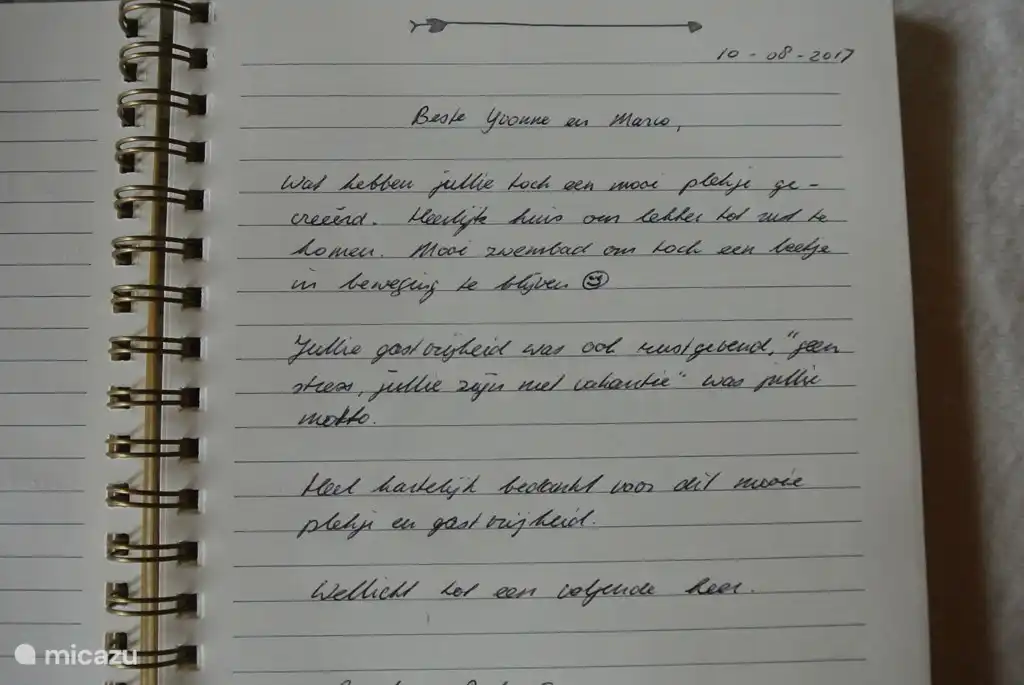 10-08-2017
Beste Yvonne en Marco,
Wat hebben jullie toch een mooi plekje ge-
creëerd. Heerlijk huis om lekker tot rust te
komen. Mooi zwembad om toch een beetje
in beweging te blijven
Jullie gastvrijheid was ook rustgevend, "geen
stress, jullie zijn met vakantie" was jullie
motto.
Heel hartelijk bedankt voor dit mooie
plekje en gastvrijheid.
Wellicht tot een volgende keer.
micazu